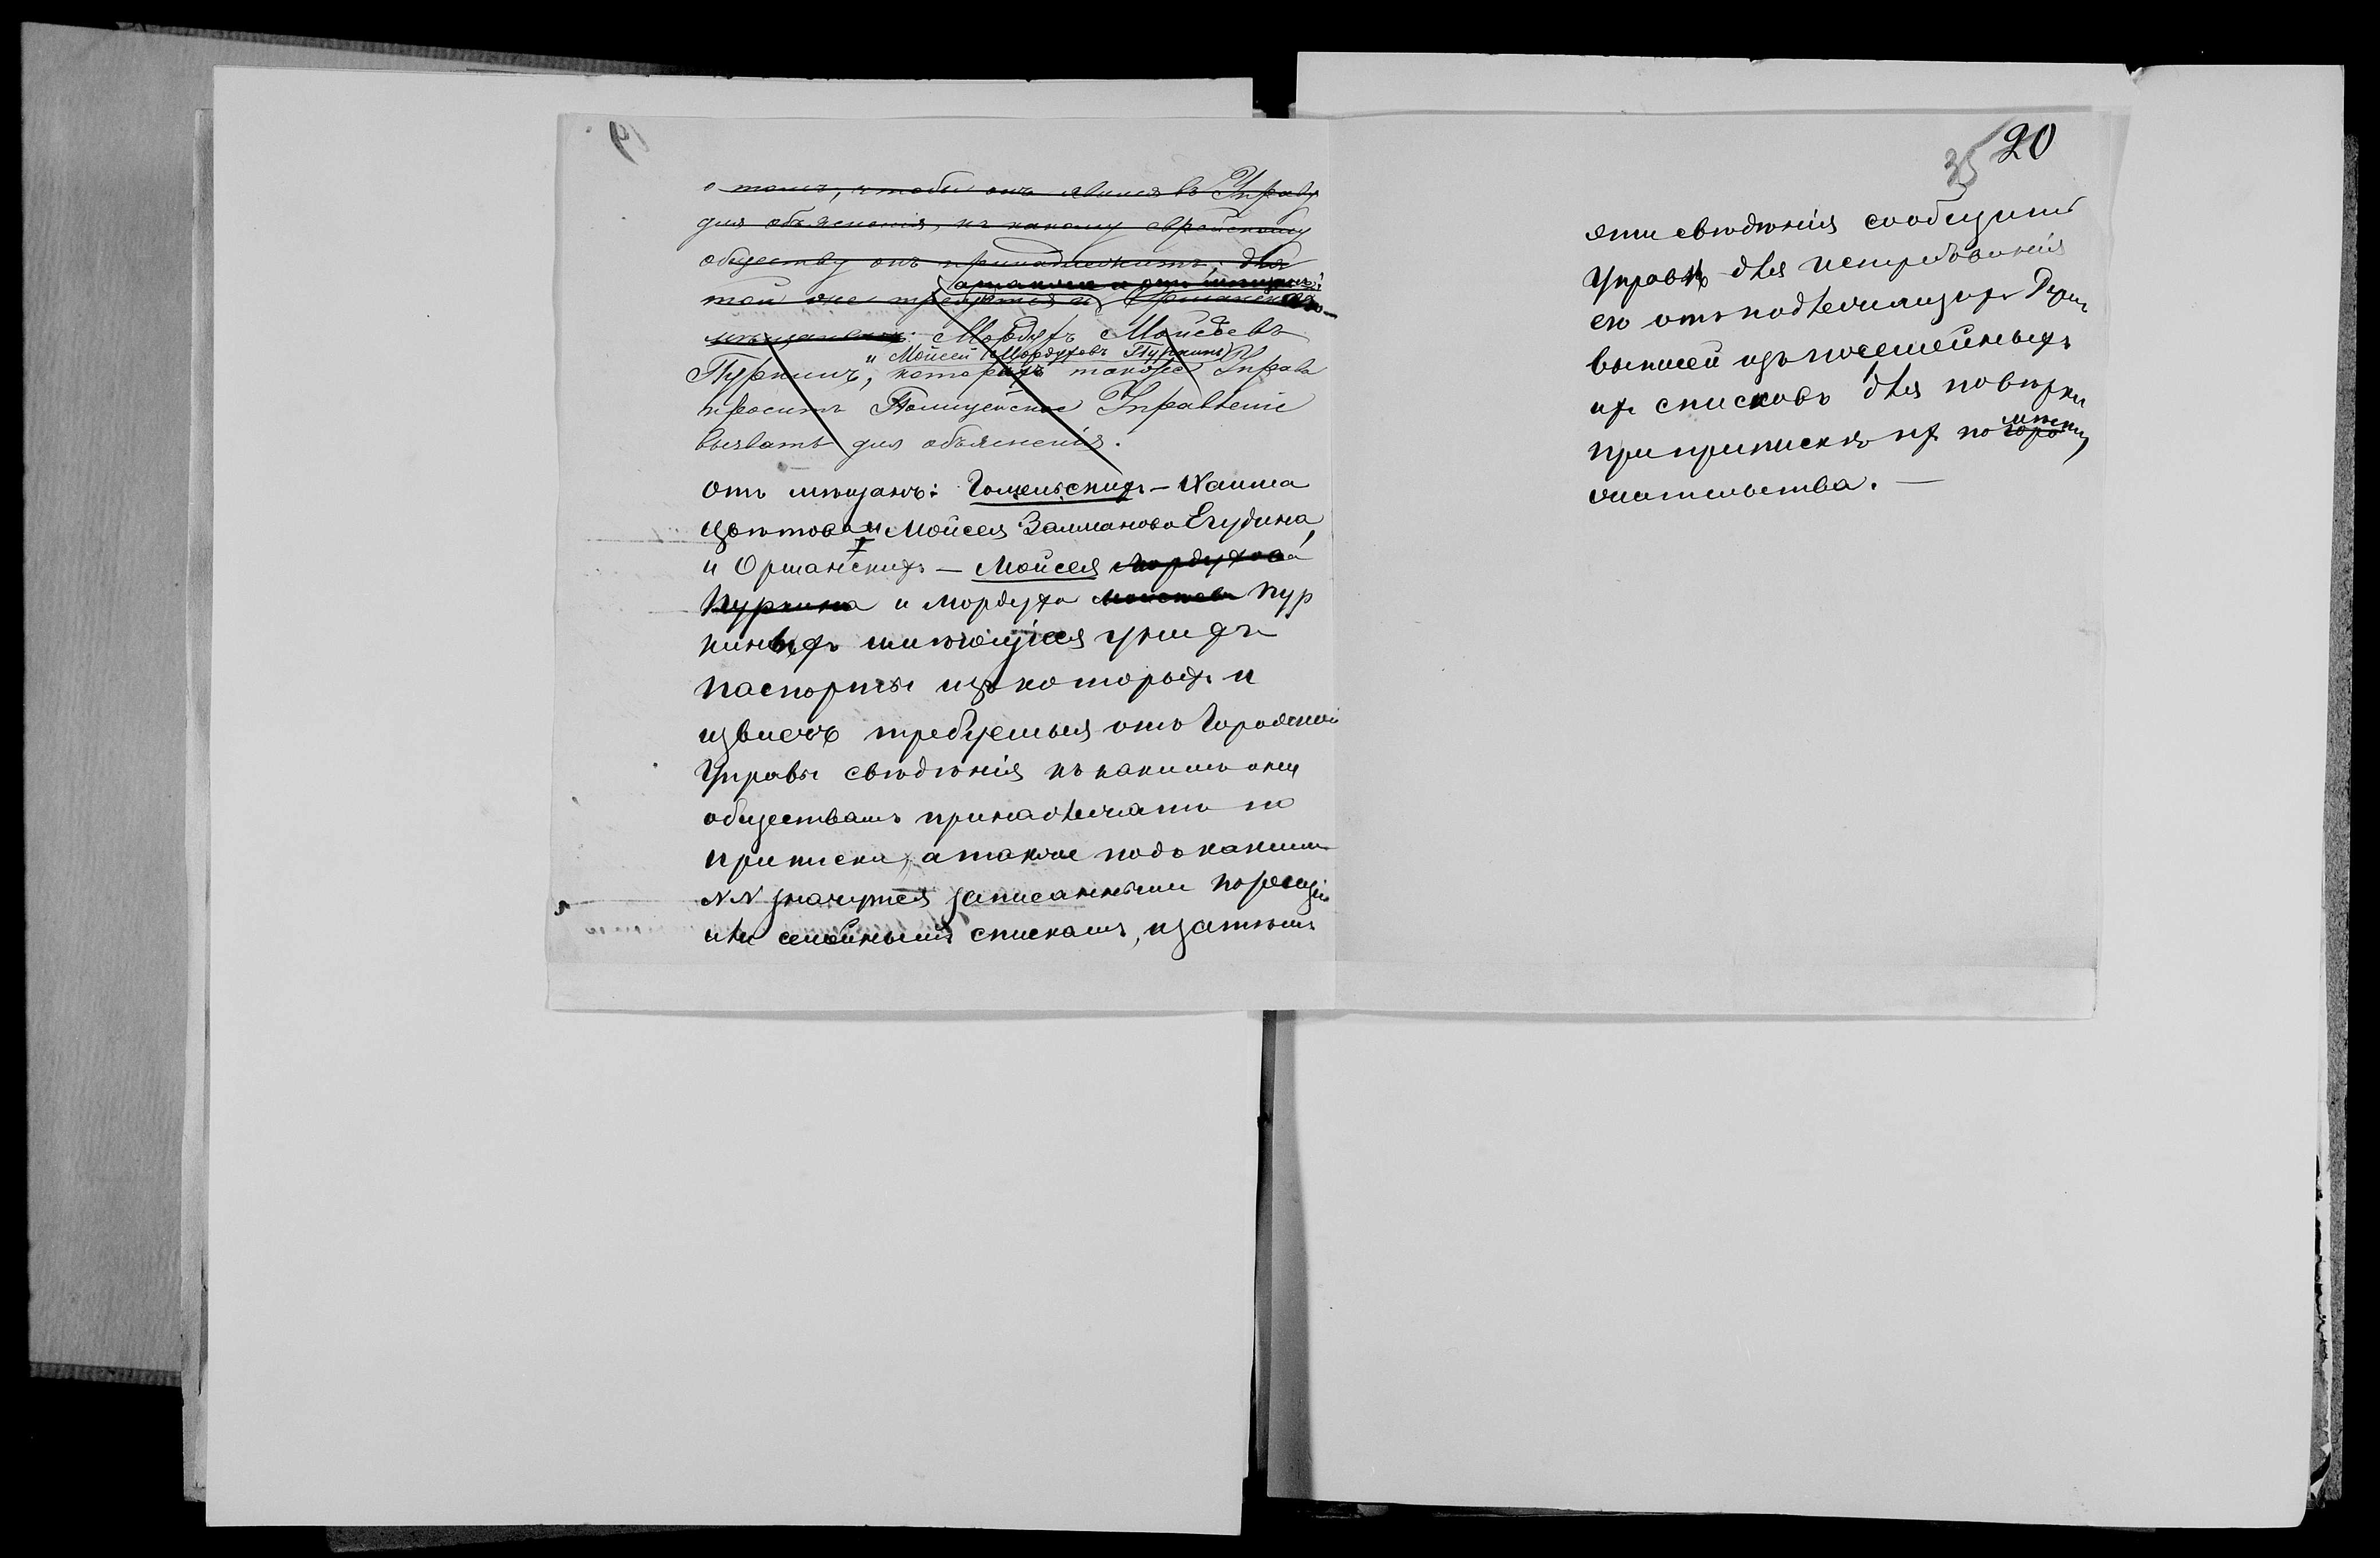 о томъ, чтобы онъ явился въ Управу
для объясненія, къ какому еврейскому
обществу онъ принадлежитъ; для
также и эти мѣщане
той же требуются и Оршанскіе
мѣщане: Мордухъ Мойсеевъ
и Мойсей Мордуховъ Пуркины
Пуркинъ, которыхъ также Управа
проситъ Полицейское Управленіе
вызвать для объясненія.
отъ мѣщанъ: Гомельскихъ – Хаима
Цейтова и Мойсея Залманова Егудина,
и Оршанскихъ – Мойсея Мордухова
Пуркина и Мордуха Мойсеева Пур
киныхъ имѣющіеся у нихъ
паспорты изъ которыхъ и
извлечь требуемыя отъ Городской
Управы свѣдѣнія къ какимъ они
обществамъ принадлежатъ по
приписки, а также подъ какими
NN значутся записанными по ревизіи
или семейнымъ спискамъ, и затѣмъ
35 20
эти свѣдѣнія сообщить
Управѣ для истребованія
ею отъ подлежащихъ
выписей изъ посемейныхъ
их списковъ для повѣрки
при припискѣ их по
мѣсту
жительства. —